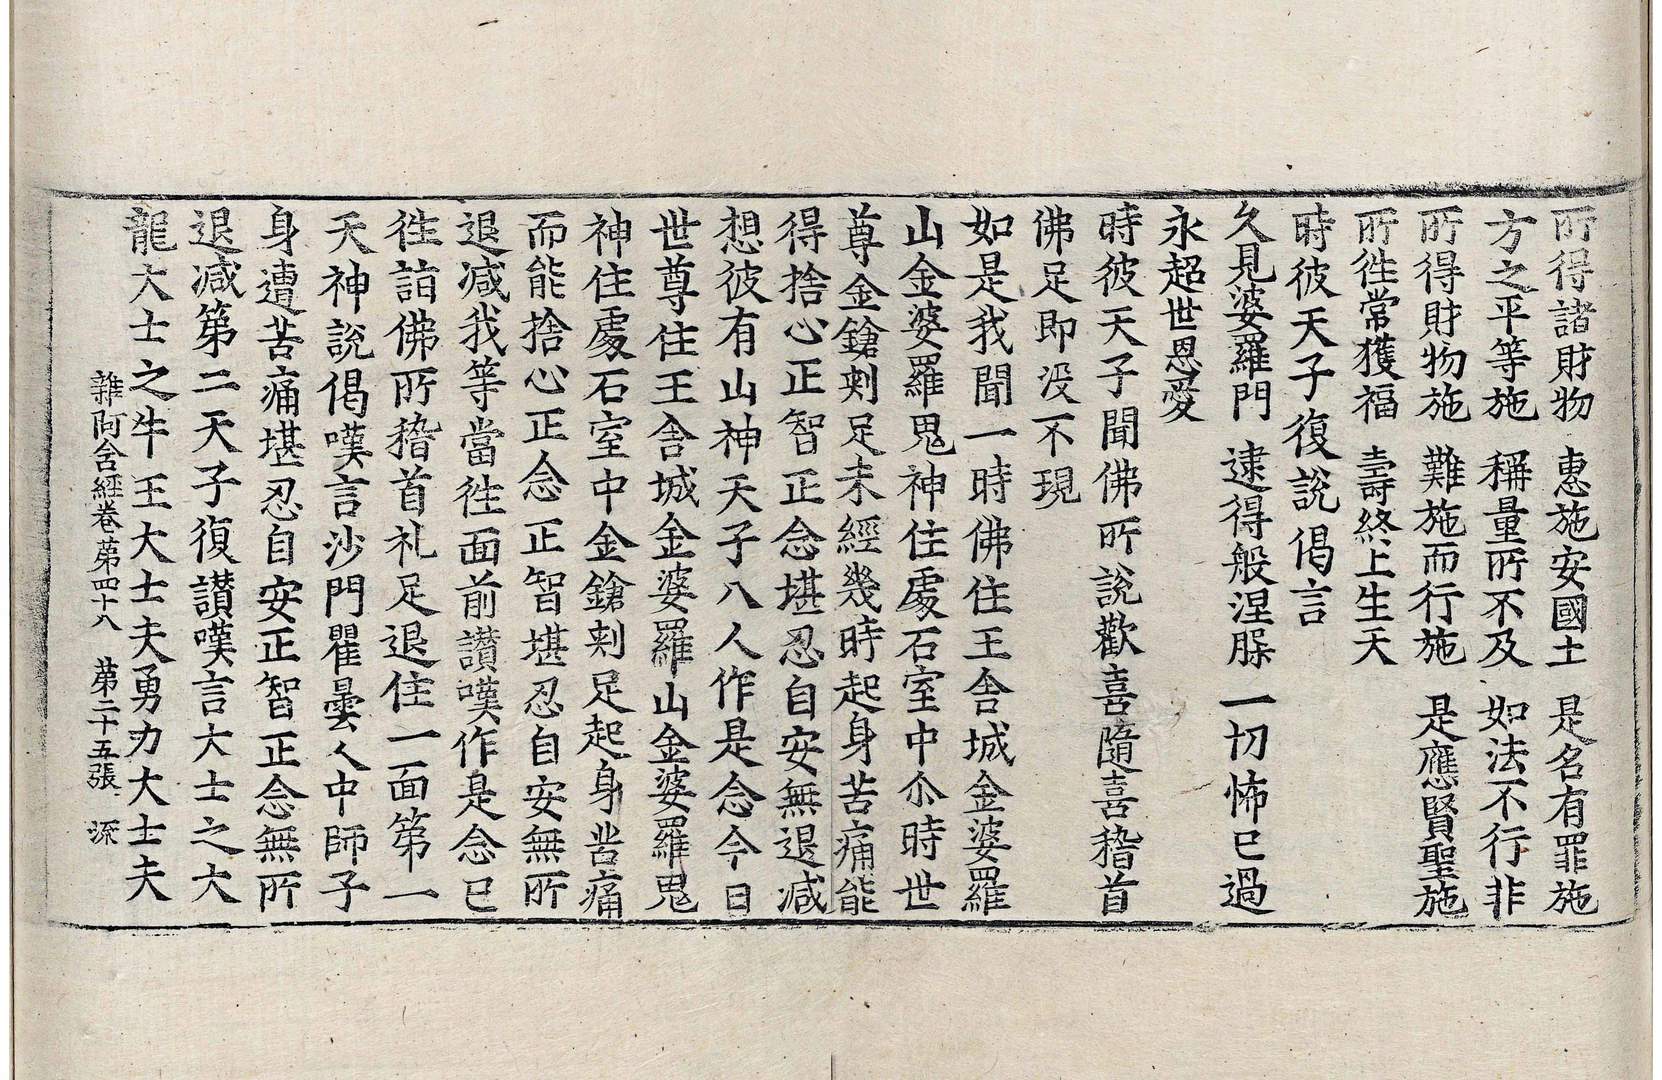 所得諸財物　惠施安國土　是名有罪施
方之平等施　稱量所不及　如法不行非
所得財物施　難施而行施　是應賢聖施
所徃常獲福　壽終上生天
時彼天子復說偈言
久見婆羅門　逮得般涅槃　一切怖已過
永超世恩愛
時彼天子聞佛所說歡喜隨喜稽首
佛足即没不現
如是我聞一時佛住王舍城金婆羅
山金婆羅鬼神住處石室中尒時世
尊金鎗刺足未經幾時起身苦痛能
得捨心正智正念堪忍自安無退减
想彼有山神天子八人作是念今日
世尊住王舍城金婆羅山金婆羅鬼
神住處石室中金鎗刺足起身苦痛
而能捨心正念正智堪忍自安無所
退减我等當徃面前讃嘆作是念已
徃詣佛所稽首礼足退住一面第一
天神說偈嘆言沙門瞿曇人中師子
身遭苦痛堪忍自安正智正念無所
退减第二天子復讃嘆言大士之大
龍大士之牛王大士夫勇力大士夫
雜阿含經卷第四十八　第二十五張　流